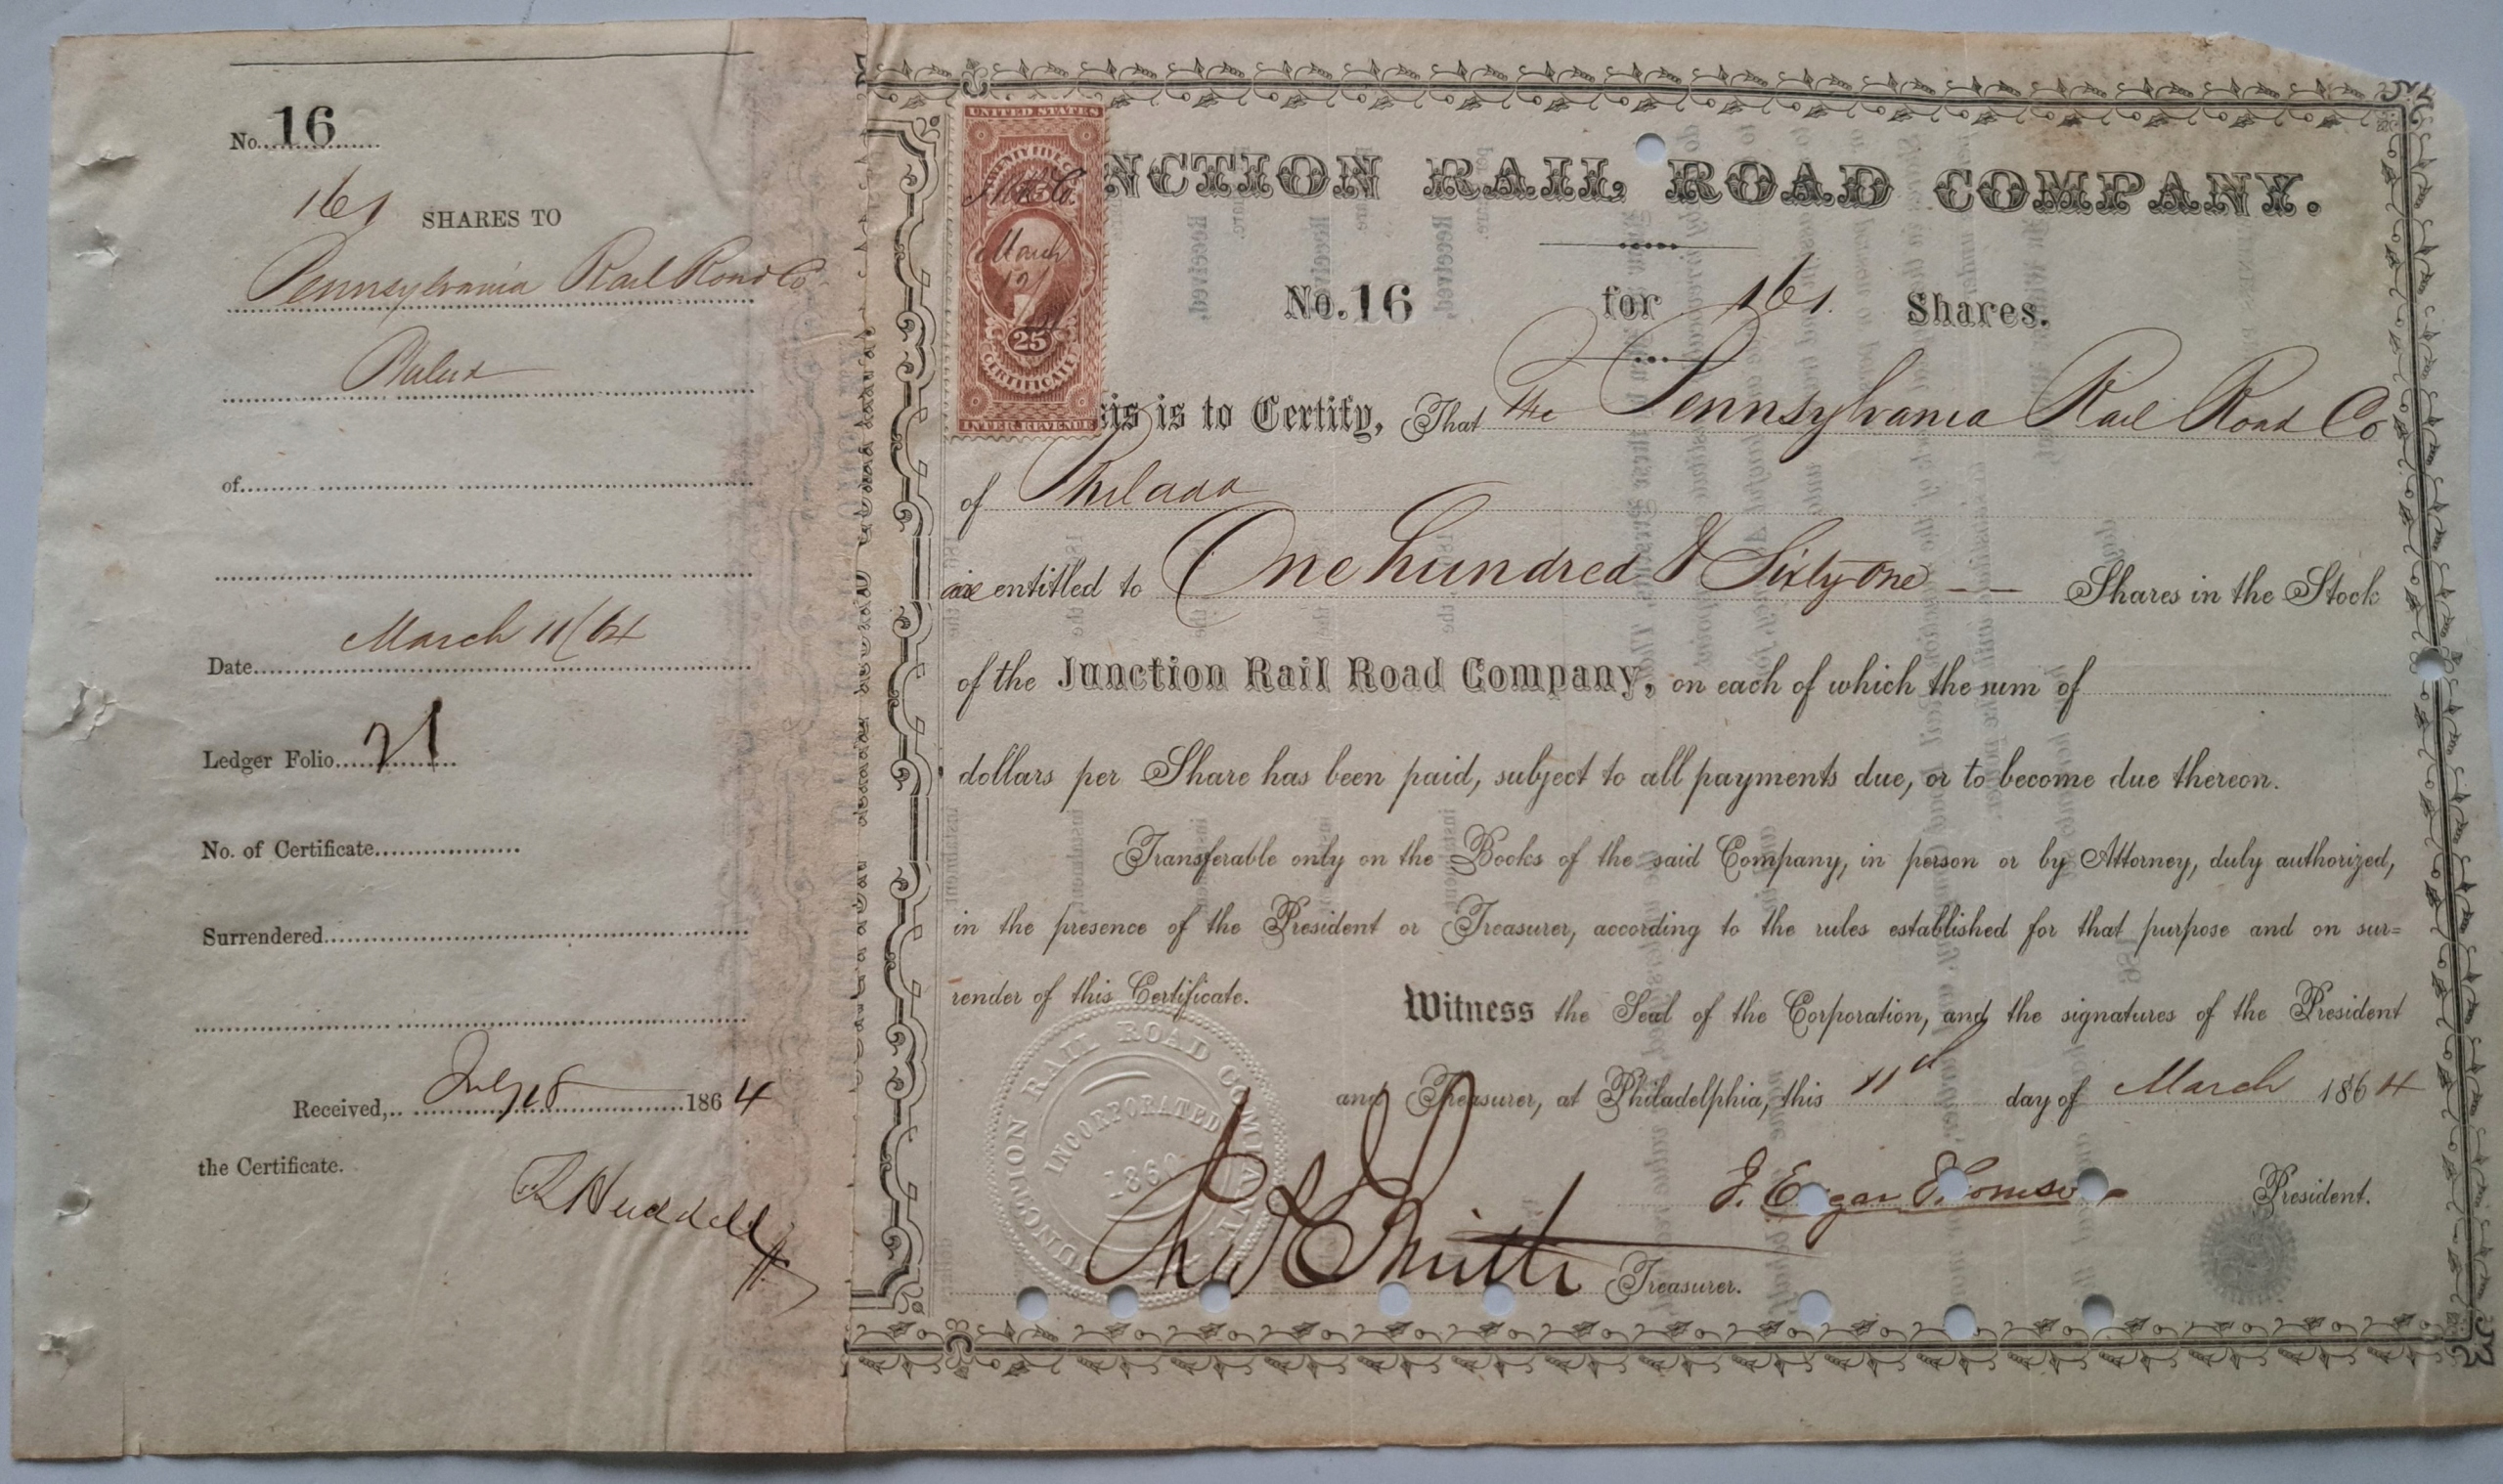 No. 16
161 SHARES TO
Pennsylvania Rail Road Co
Philada
of
Date March 11/64
Ledger Folio 21
No. of Certificate
Surrendered
Received, July 18 1864
the Certificate.
Huddell
UNITED STATES
TWENTY FIVE CTS
J.R.R. Co.
March
25
CERTIFICATE
INTER. REVENUE
NCTION RAIL ROAD COMPANY.
No. 16 for 161. Shares.
is is to Certify, That The Pennsylvania Rail Road Co
of Philada
are entitled to One hundred & Sixty one Shares in the Stock
of the Junction Rail Road Company, on each of which the sum of
dollars per Share has been paid, subject to all payments due, or to become due thereon.
Transferable only on the Books of the said Company, in person or by Attorney, duly authorized,
in the presence of the President or Treasurer, according to the rules established for that purpose and on sur=
render of this Certificate.
Witness the Seal of the Corporation, and the signatures of the President
and Treasurer, at Philadelphia, this 11th day of March 1864
J. Edgar Thomson President.
Smith Treasurer.
JUNCTION RAIL ROAD COMPANY.
INCORPORATED
1860